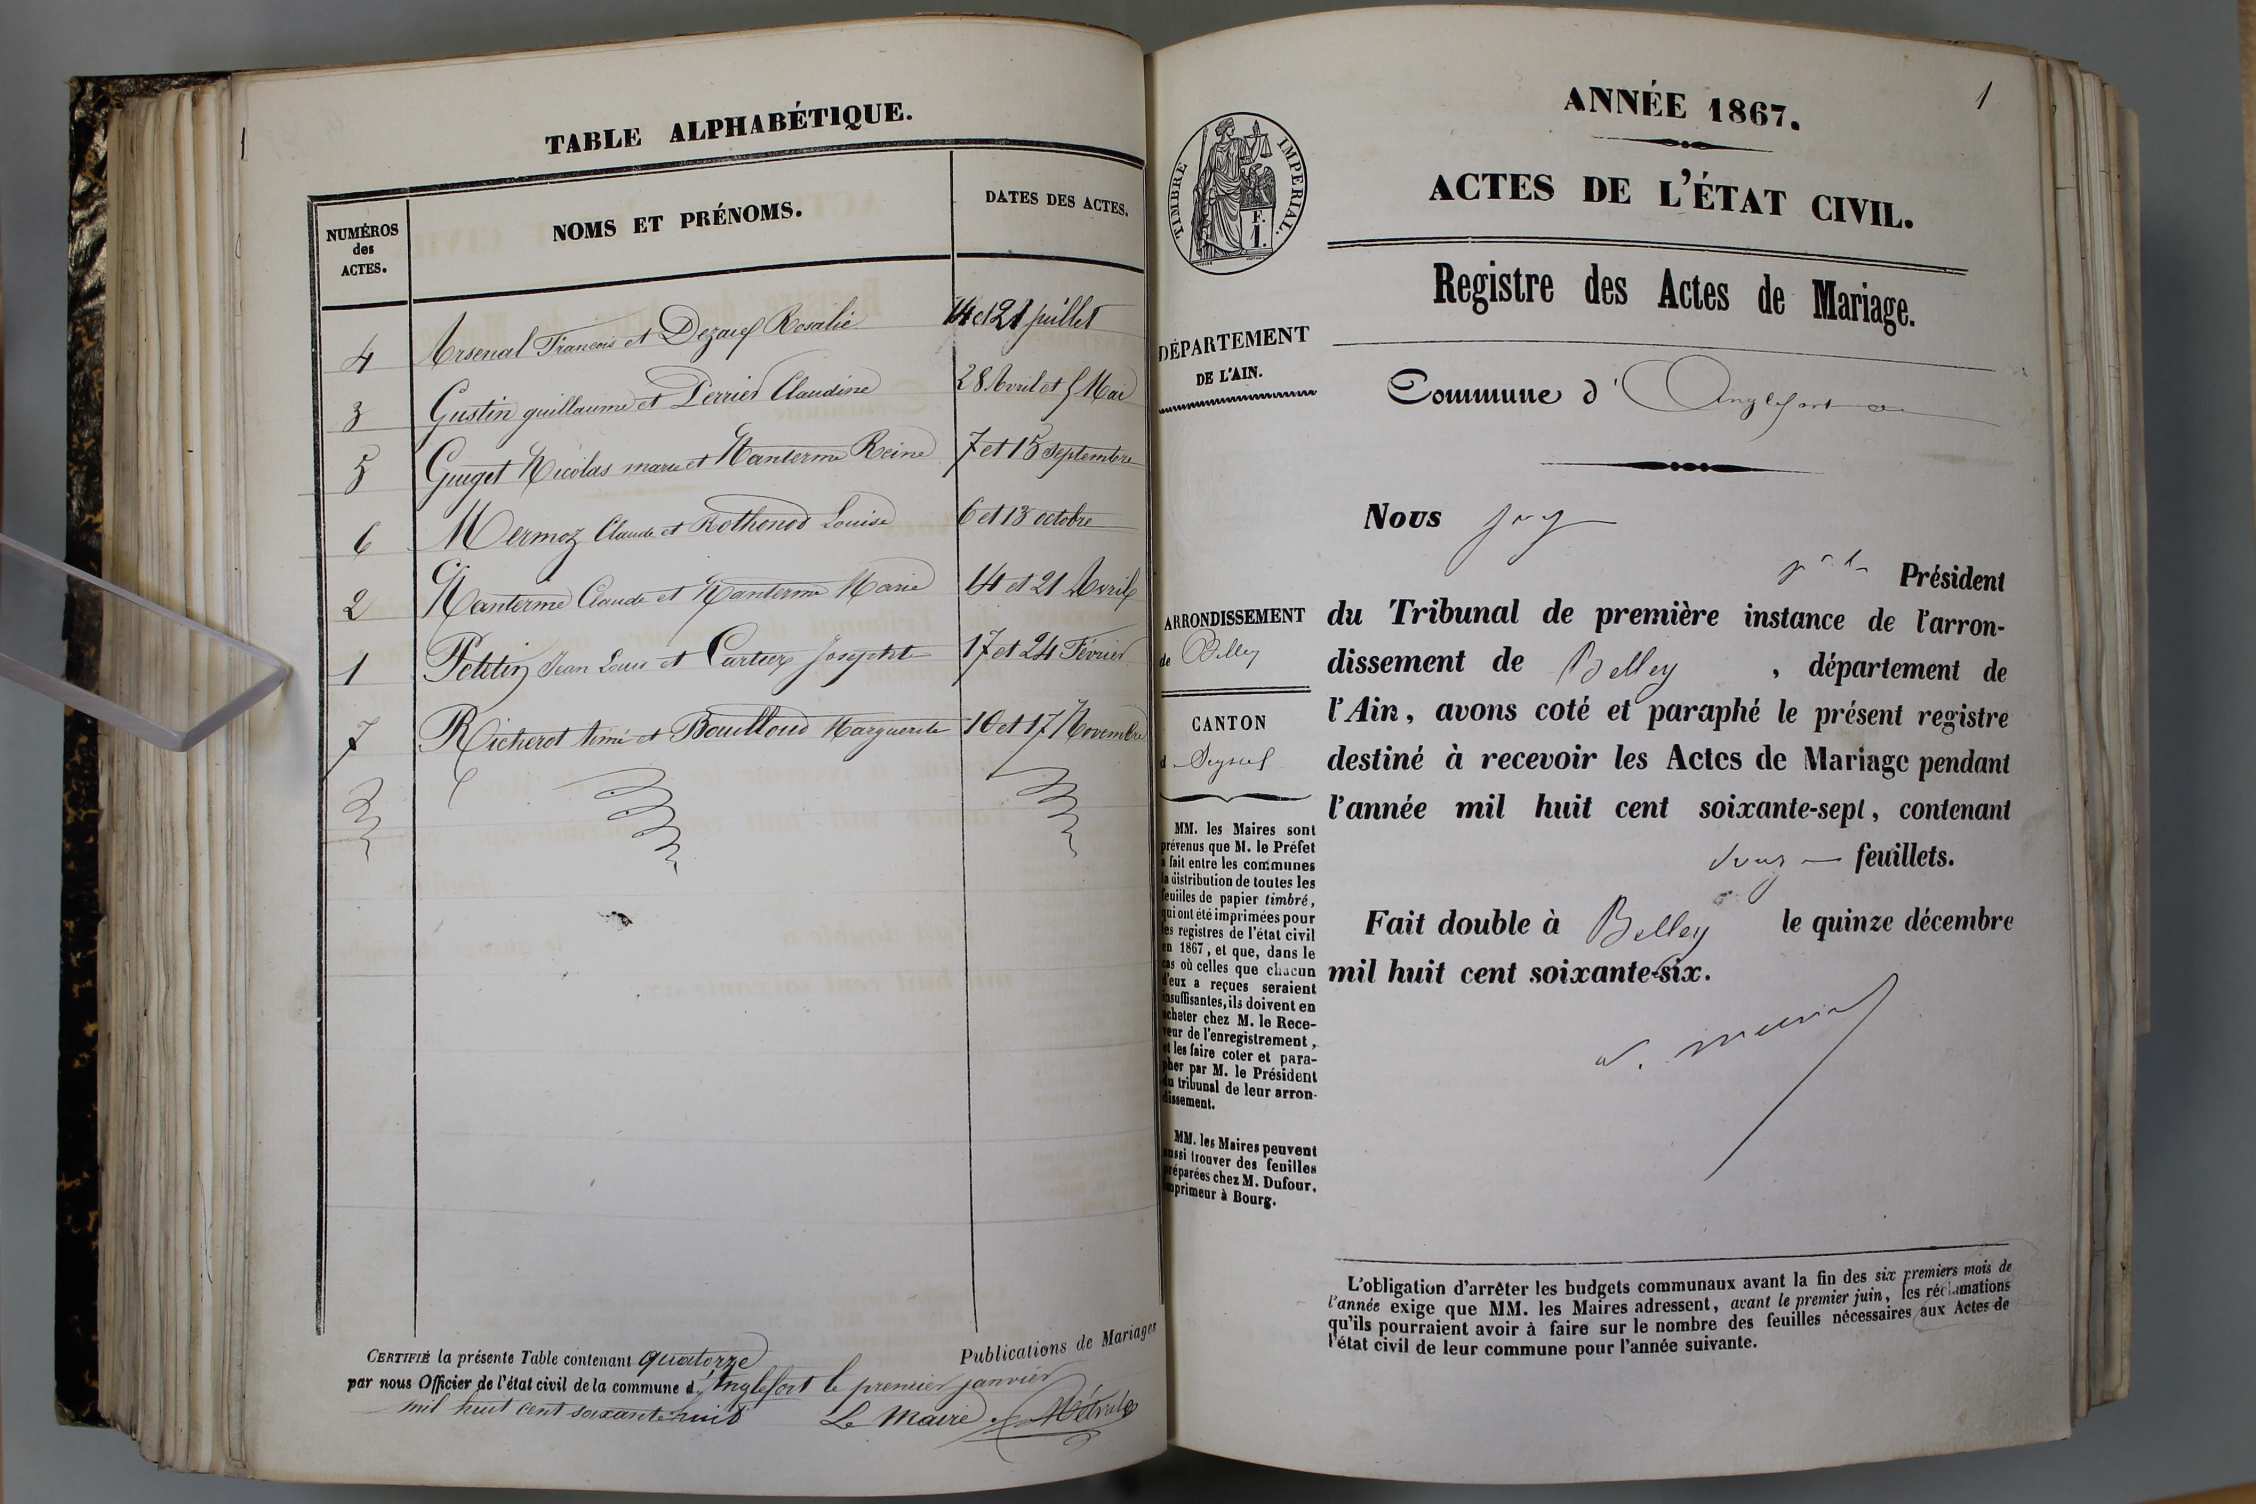 1
TABLE ALPHABÉTIQUE.
NUMÉROS des ACTES.
NOMS ET PRÉNOMS.
DATES DES ACTES.
4 Arsenal François et Rosalie 14 et 21 juillet
3 Gustin guillaume et Perrier Claudine 28 Avril et 5 Mai
5 Guget Nicolas marie et Nanterme Reine 7 et 15 septembre
6 Mermoz Claude et Rothonod Louise 6 et 13 octobre
2 Nanterme Claude et Nanterme Marie 14 et 21 Avril
1 Petitin Jean Louis et Josephte 17 et 24 Février
7 Richerot Aimé et Bouilloud Marguerite 10 et 17 Novembre
CERTIFIÉ la présente Table contenant quatorze Publications de Mariages
par nous Officier de l'état civil de la commune d'Anglefort le premier janvier
mil huit cent soixante huit Le Maire
1
TIMBRE IMPERIAL.
F.
1.
ANNÉE 1867.
ACTES DE L'ÉTAT CIVIL.
Registre des Actes de Mariage.
Commune d' Anglefort
DÉPARTEMENT
DE L'AIN.
ARRONDISSEMENT
de Belley
CANTON
d Seyssel
MM. les Maires sont
prévenus que M. le Préfet
a fait entre les communes
la distribution de toutes les
feuilles de papier timbré,
qui ont été imprimées pour
les registres de l'état civil
en 1867, et que, dans le
cas où celles que chacun
d'eux a reçues seraient
insuffisantes, ils doivent en
acheter chez M. le Rece-
veur de l'enregistrement,
et les faire coter et para-
pher par M. le Président
du tribunal de leur arron-
dissement.
MM. les Maires peuvent
aussi trouver des feuilles
préparées chez M. Dufour,
imprimeur à Bourg.
Nous
Président
du Tribunal de première instance de l'arron-
dissement de Belley, département de
l'Ain, avons coté et paraphé le présent registre
destiné à recevoir les Actes de Mariage pendant
l'année mil huit cent soixante-sept, contenant
feuillets.
Fait double à Belley le quinze décembre
mil huit cent soixante-six.
L'obligation d'arrêter les budgets communaux avant la fin des six premiers mois de
l'année exige que MM. les Maires adressent, avant le premier juin, les réclamations
qu'ils pourraient avoir à faire sur le nombre des feuilles nécessaires aux Actes de
l'état civil de leur commune pour l'année suivante.